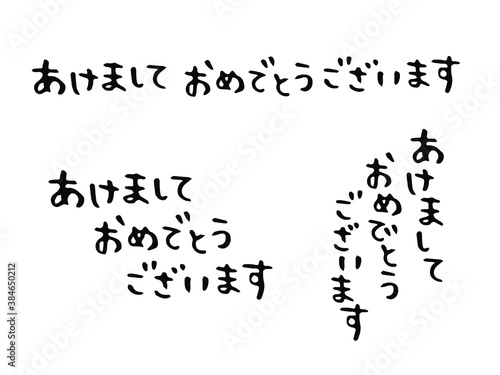 あけまして おめでとうございます
あけまして
おめでとう
ございます
あけまして
おめでとう
ございます
Adobe Stock | #384650212